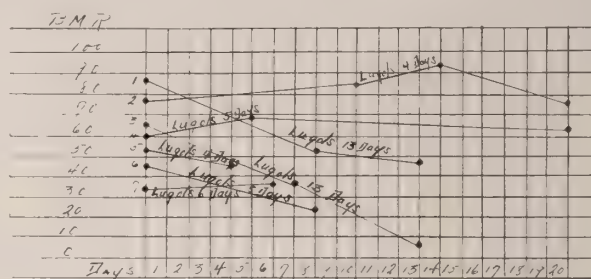 B M R
100
90
80
70
60
50
40
30
20
10
0
1
2
3
4
5
6
7
Lugols 4 Days
Lugols 5 Days
Lugols 13 Days
Lugols 4 Days
Lugols 13 Days
Lugols 5 Days
Lugols 6 Days
Days 1 2 3 4 5 6 7 8 9 10 11 12 13 14 15 16 17 18 19 20